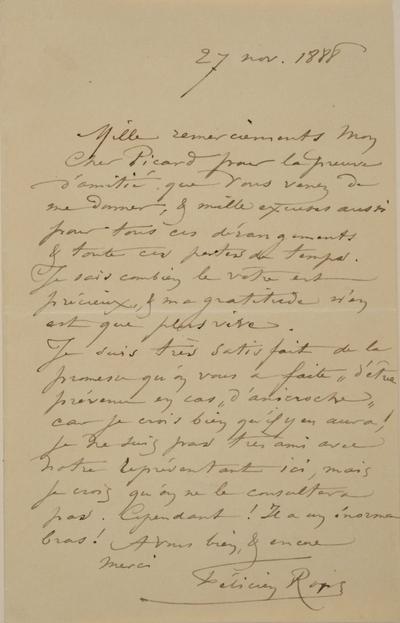 27 nov. 1888
Mille remerciements Mon
cher Picard pour la preuve
d'amitié que vous venez de
me donner, & mille excuses aussi
pour tous ces dérangements
& toute ces pertes de temps.
Je sais combien le votre est
précieux, & ma gratitude n'en
est que plus vive.
Je suis très satisfait de la
promesse qu'on vous a faite „d'être
prévenu en cas „d'anicroche„
car je crois bien qu'il y en aura!
Je ne suis pas très ami avec
notre représentant ici, mais
je crois qu'on ne le consultera
pas. Cependant! Il a un énorme
bras! A vous bien, & encore
merci
Félicien Rops